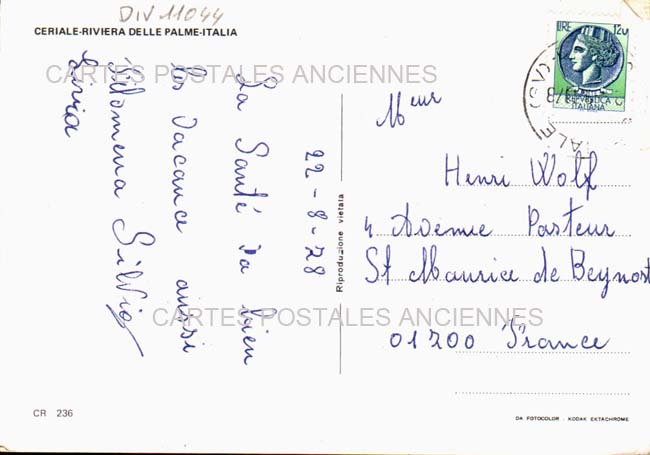 DIV 11044
CERIALE-RIVIERA DELLE PALME-ITALIA
CARTES POSTALES ANCIENNES
22-8-78
La Santé va bien
les Vacance aussi
Filomena Silvio
Livia
Riproduzione vietata
LIRE 120
REPVBBLICA
ITALIANA
ALE (SV)
Meur
Henri Wolf
4 Avenue Pasteur
St Maurice de Beynost
01700 France
CARTES POSTALES ANCIENNES
CR 236
DA FOTOCOLOR - KODAK EKTACHROME